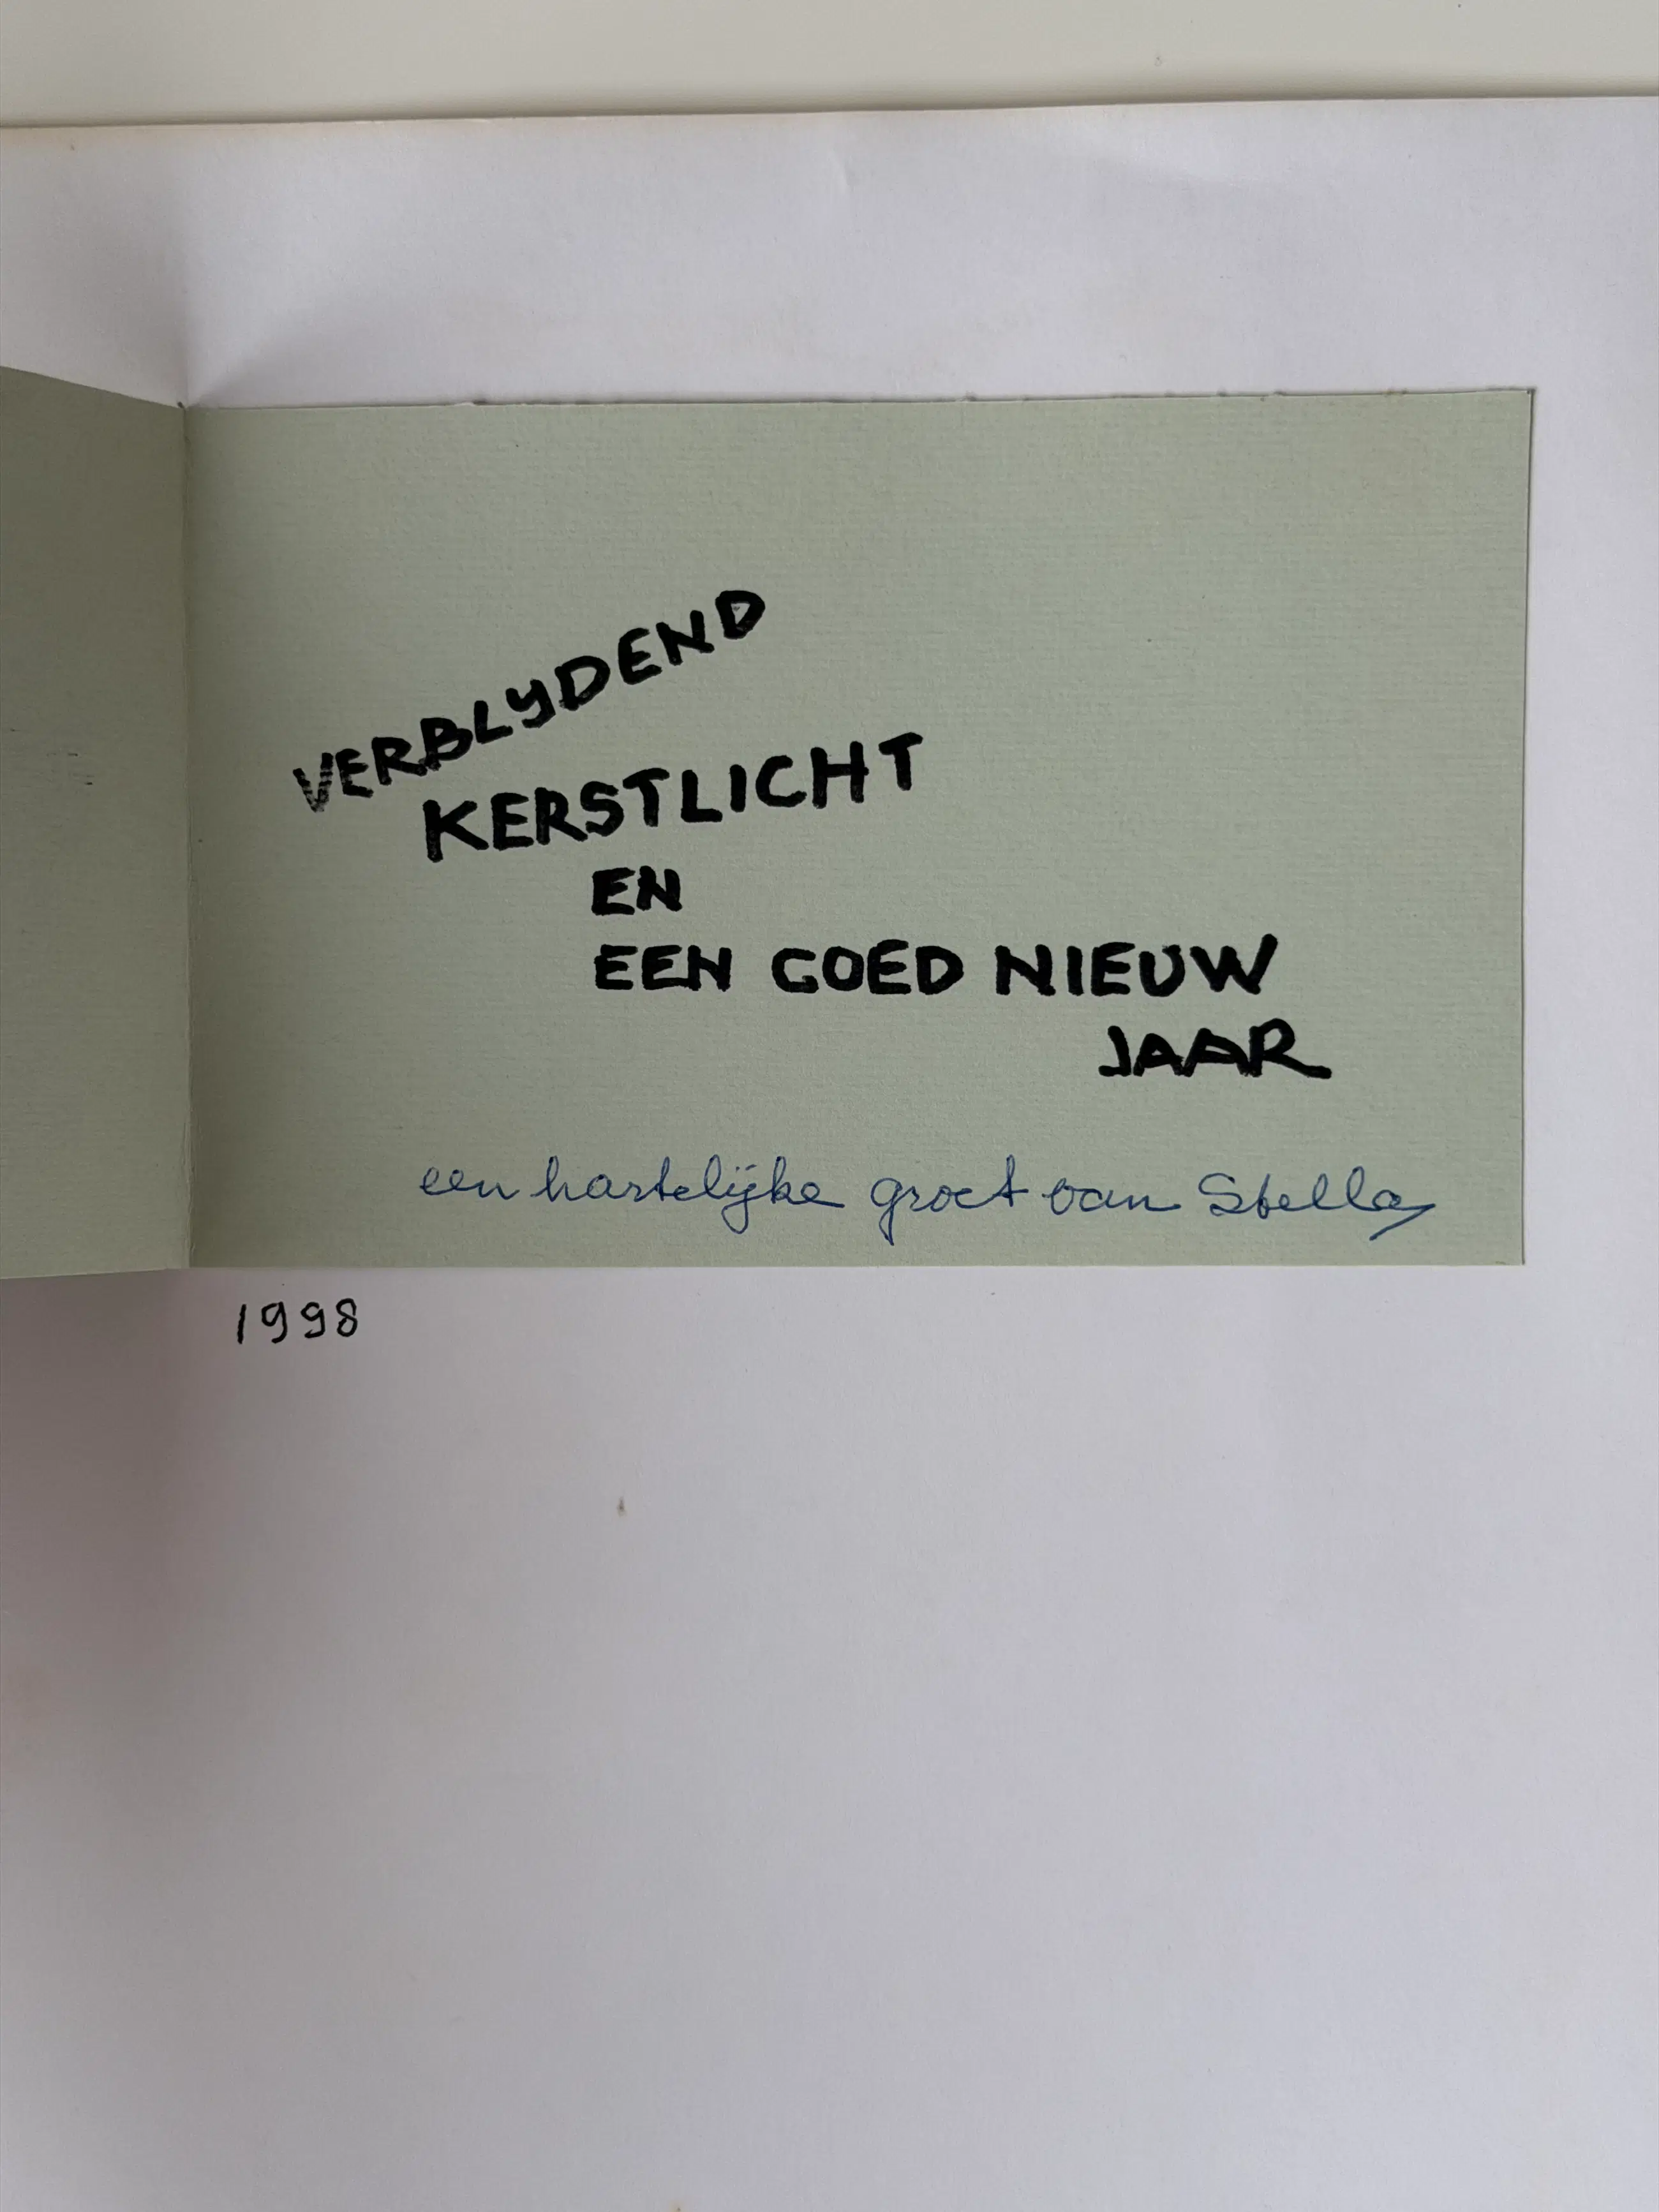 VERBLYDEND
KERSTLICHT
EN
EEN GOED NIEUW
JAAR
een hartelijke groet van Stella
1998